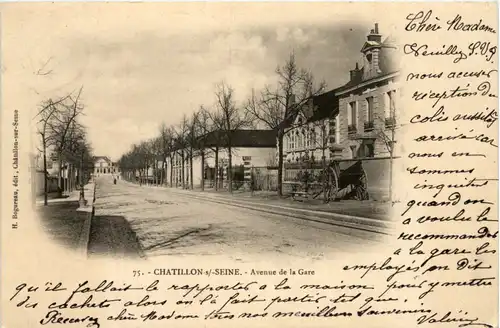 Chère Madame
Veuillez S.V.P.
nous accuser
réception du
colis aussitôt
arrivé car
nous en
sommes
inquiets
quand on
a voulu le
recommander
à la gare les
employés en Dit
qu'il fallait le rapporter à la maison pour y mettre
des cachets alors on l'a fait partir tel que.
Recevez chère Madame tous nos meilleurs souvenirs
Valérie
75. - CHATILLON-s/-SEINE. - Avenue de la Gare
H. Rogueran, édit., Châtillon-sur-Seine